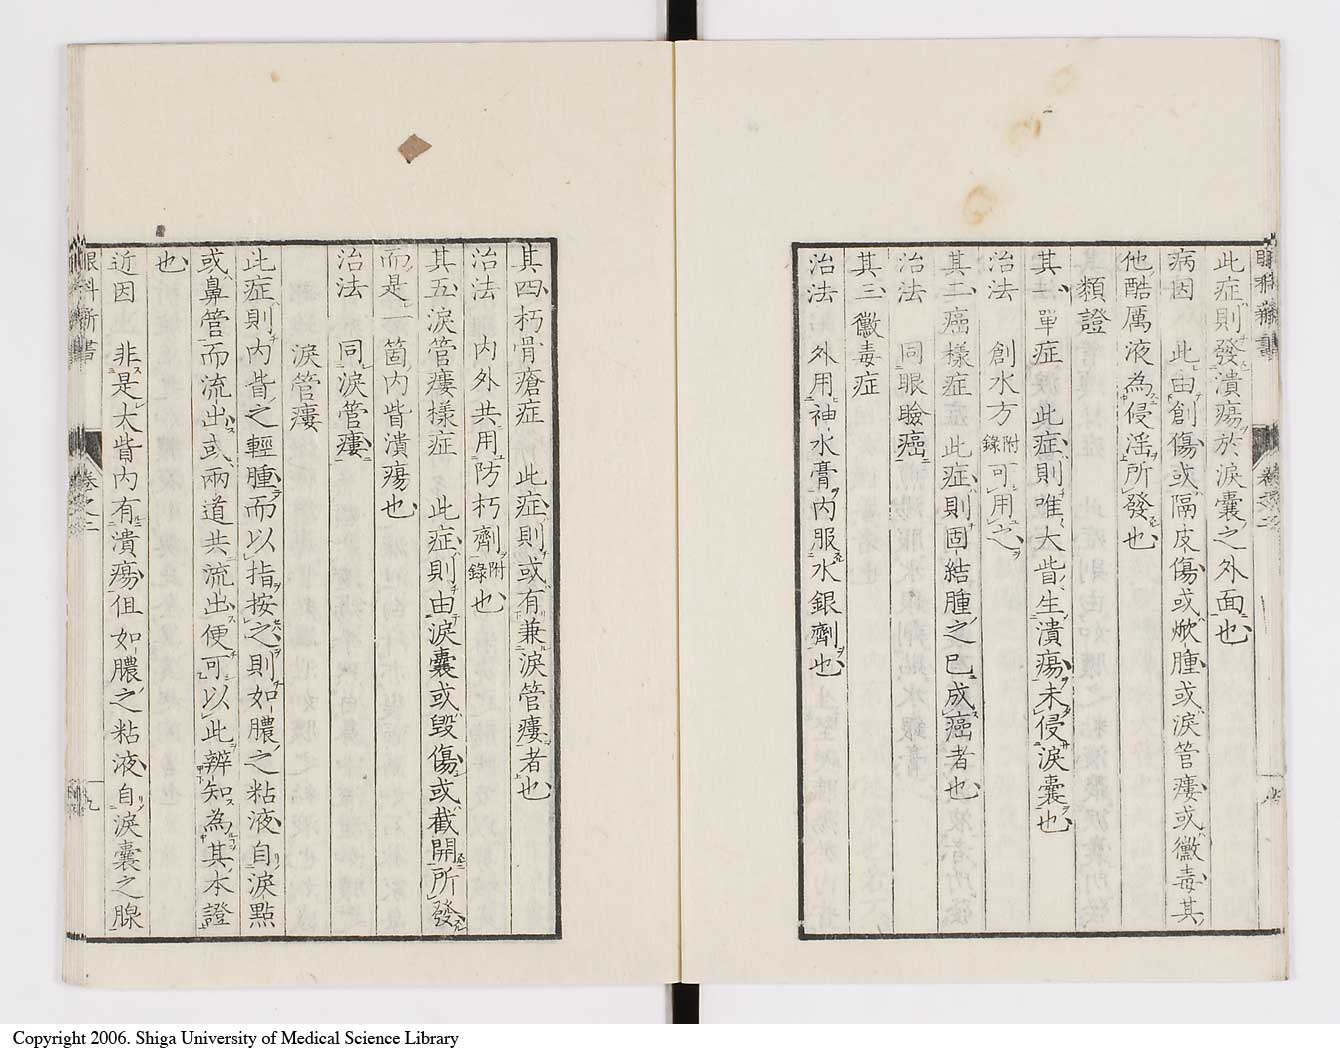 此症則發潰瘍於淚囊之外面也
病因 此由創傷或隔皮傷或焮腫或淚管瘻或黴毒其
他酷厲液為侵淫所發也
類證
其一單症 此症則唯大眥生潰瘍未侵淚囊也
治法 創水方附錄可用之
其二癌樣症 此症則固結腫之已成癌者也
治法 同眼瞼癌
其三黴毒症
治法 外用神水膏內服水銀劑也
其四朽骨瘡症 此症則或有兼淚管瘻者也
治法 內外共用防朽劑附錄也
其五淚管瘻樣症 此症則由淚囊或毀傷或截開所發
而是一箇內眥潰瘍也
治法 同淚管瘻
淚管瘻
此症則內眥之輕腫而以指按之則如膿之粘液自淚點
或鼻管而流出或兩道共流出便可以此辨知為其本證
也
近因 非是大眥內有潰瘍但如膿之粘液自淚囊之腺
眼科新書
卷之二
九
Copyright 2006. Shiga University of Medical Science Library